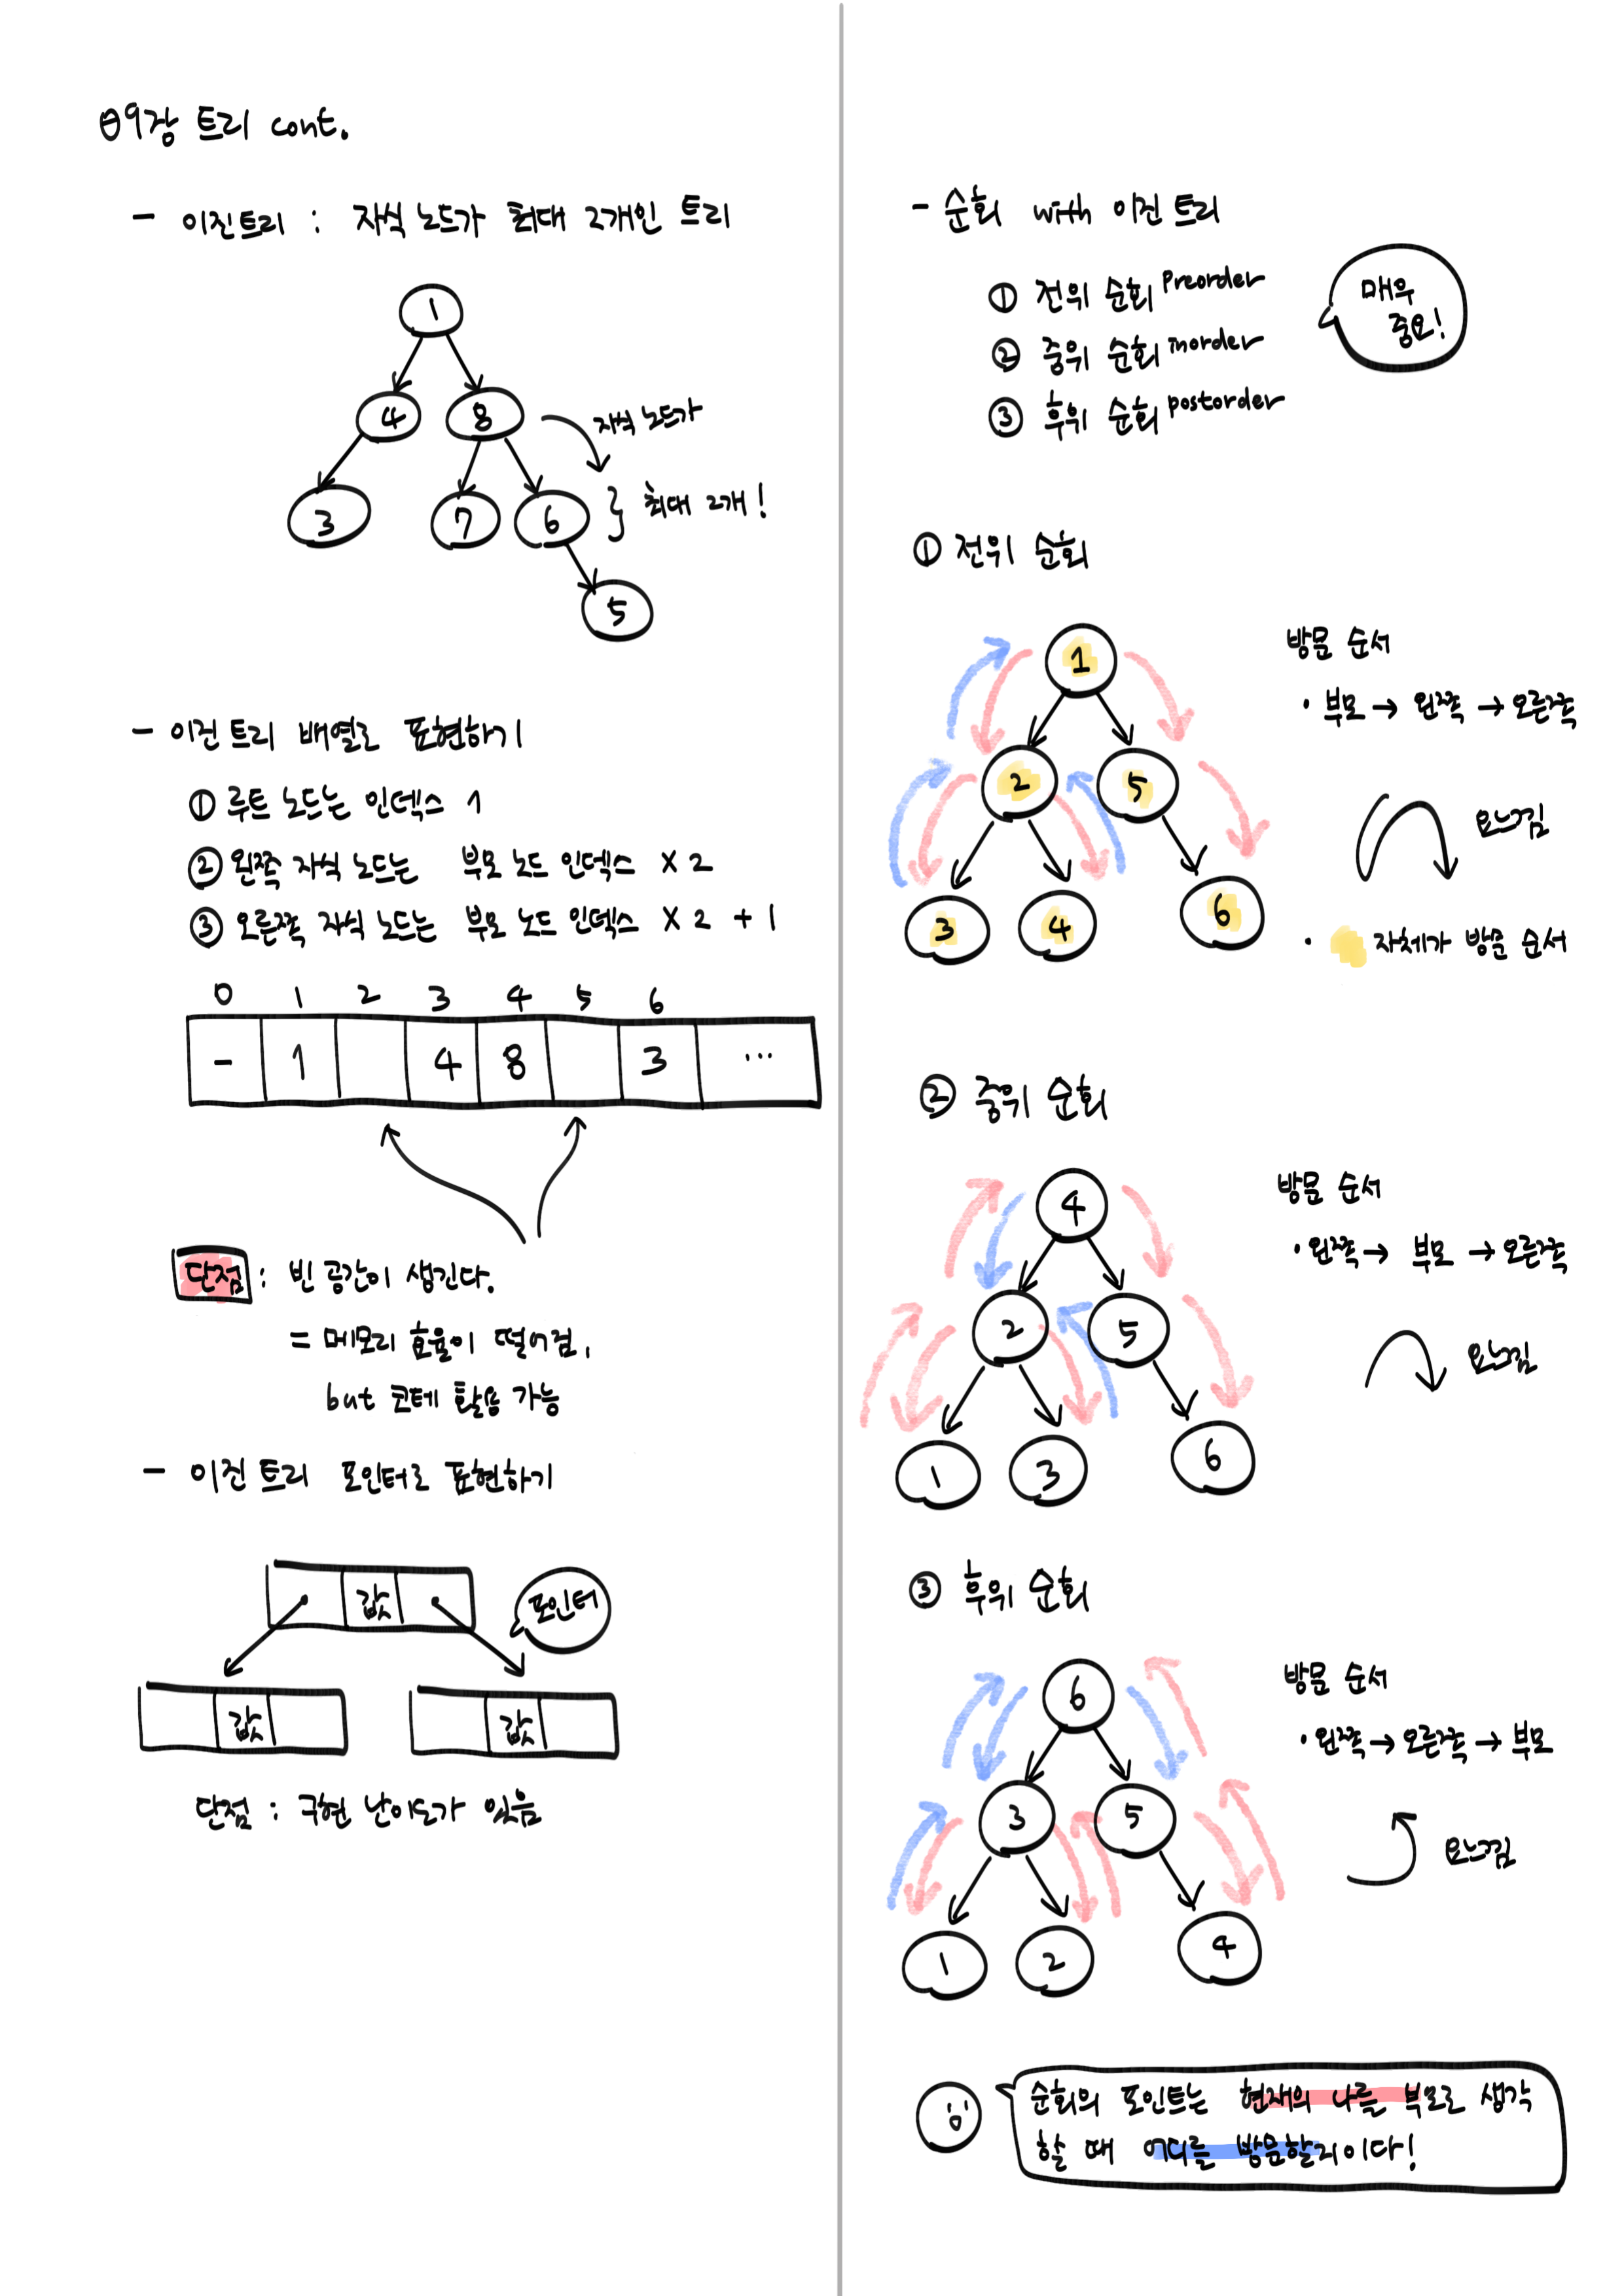 09장 트리 cont.
- 이진트리 : 자식 노드가 최대 2개인 트리
1
4 8
자식 노드가
3 7 6
최대 2개!
5
- 이진 트리 배열로 표현하기
① 루트 노드는 인덱스 1
② 왼쪽 자식 노드는 부모 노드 인덱스 × 2
③ 오른쪽 자식 노드는 부모 노드 인덱스 × 2 + 1
0 1 2 3 4 5 6
- 1 4 8 3 ...
단점 : 빈 공간이 생긴다.
= 메모리 효율이 떨어짐.
but 코테 활용 가능
- 이진 트리 포인터로 표현하기
값
포인터
값 값
단점 : 구현 난이도가 있음
- 순회 with 이진 트리
① 전위 순회 preorder
② 중위 순회 inorder
③ 후위 순회 postorder
매우
중요!
① 전위 순회
1
2 5
3 4 6
방문 순서
• 부모 → 왼쪽 → 오른쪽
요느낌
• 자체가 방문 순서
② 중위 순회
4
2 5
1 3 6
방문 순서
• 왼쪽 → 부모 → 오른쪽
요느낌
③ 후위 순회
6
3 5
1 2 4
방문 순서
• 왼쪽 → 오른쪽 → 부모
요느낌
순회의 포인트는 현재의 나를 부모로 생각
할 때 어디를 방문할지이다!